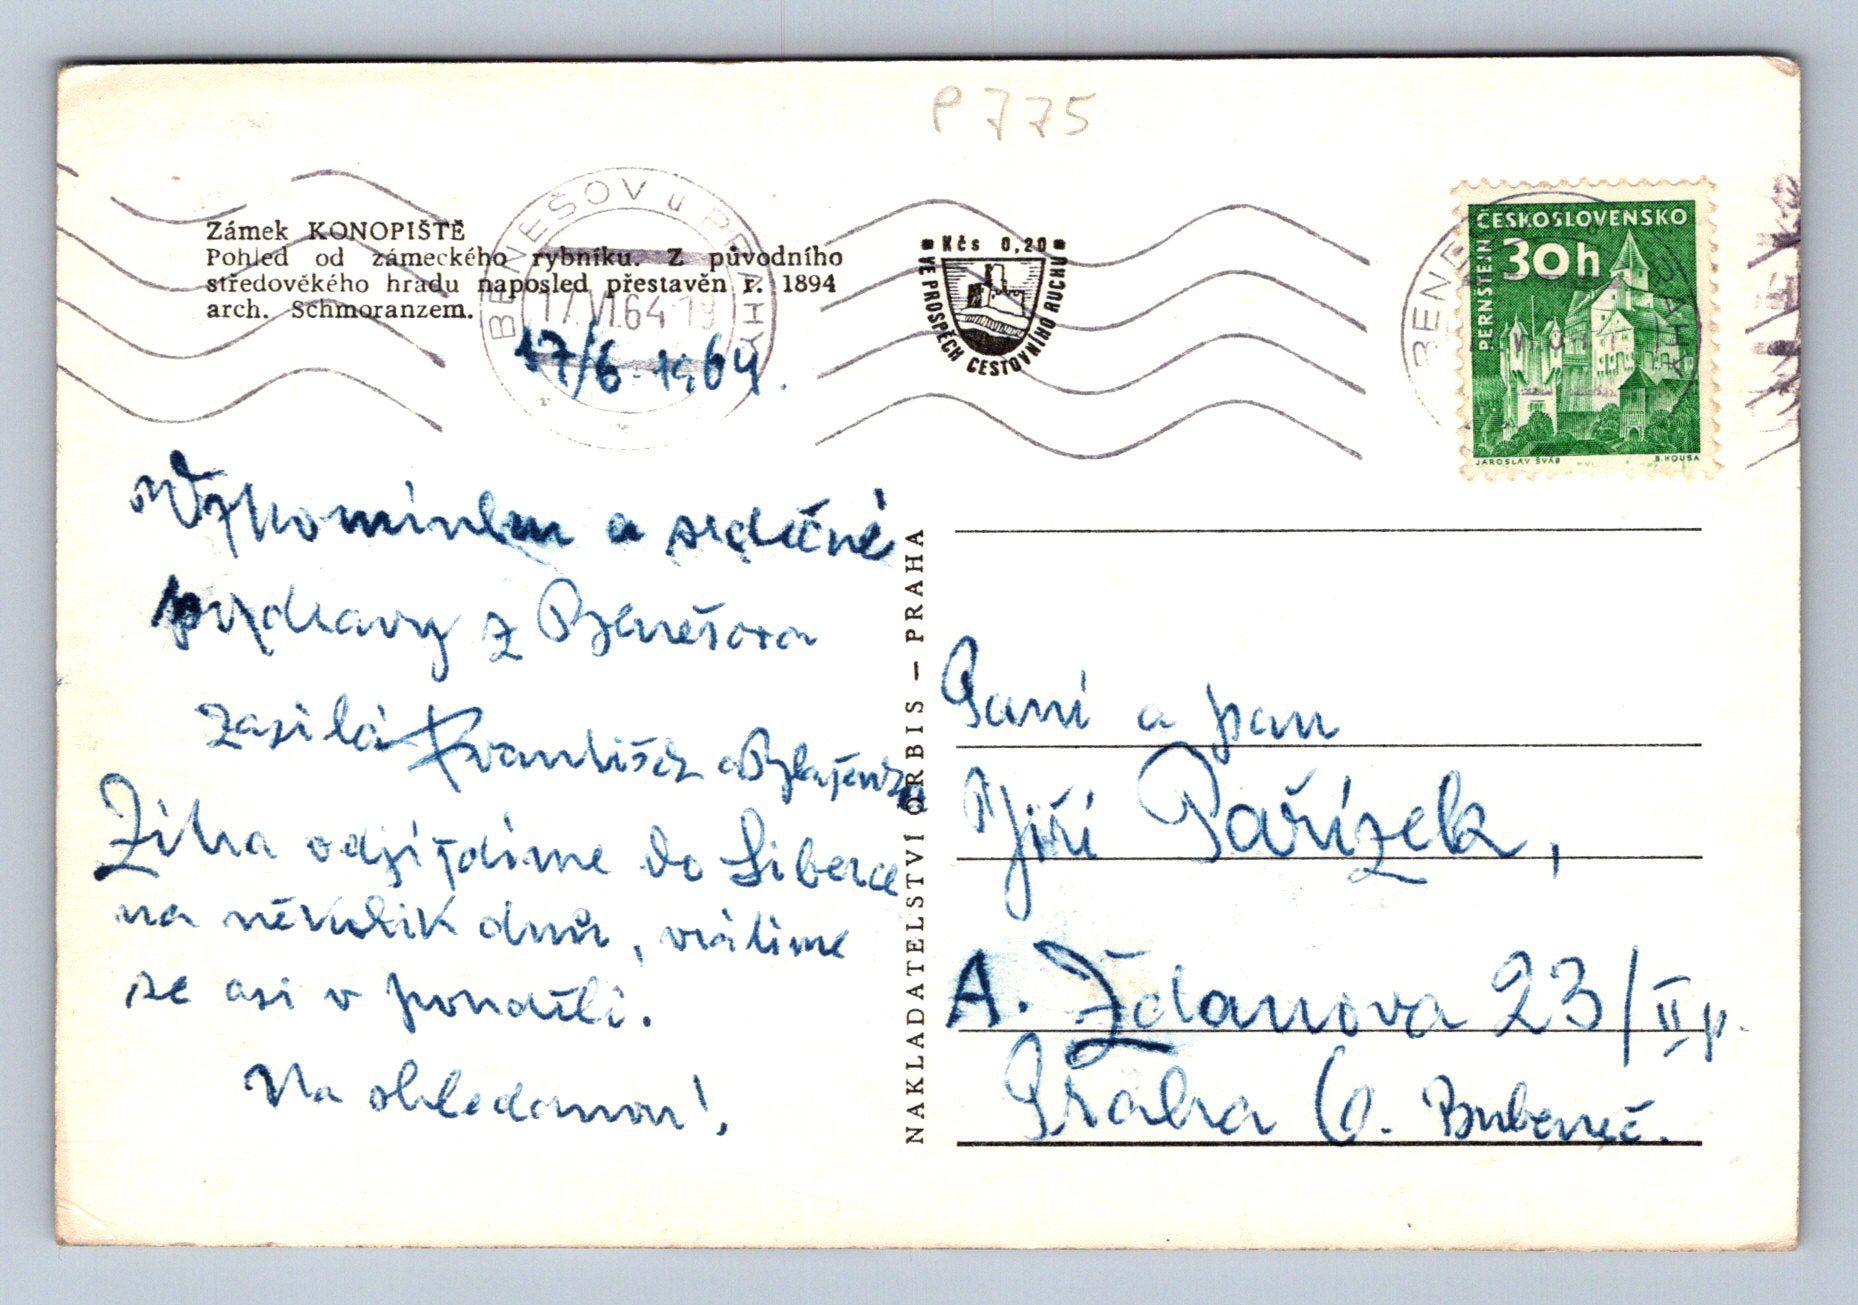 P 775
Zámek KONOPIŠTĚ
Pohled od zámeckého rybníku. Z původního
středověkého hradu naposled přestavěn r. 1894
arch. Schmoranzem.
BENEŠOV u PRAHY
17.VI.64-19
17/6. 1964.
Kčs 0,20
VE PROSPĚCH CESTOVNÍHO RUCHU
ČESKOSLOVENSKO
30h
PERNŠTEJN
JAROSLAV ŠVÁB B. HOUSA
Vzpomínku a srdečné
pozdravy z Benešova
zasílá František a
Zítra odjíždíme do Liberce
na několik dnů, vrátíme
se asi v pondělí.
Na shledanou!
NAKLADATELSTVÍ ORBIS – PRAHA
Paní a pan
Jiří Pařízek,
A. Ždanova 23/II p.
Praha 6. Bubeneč.